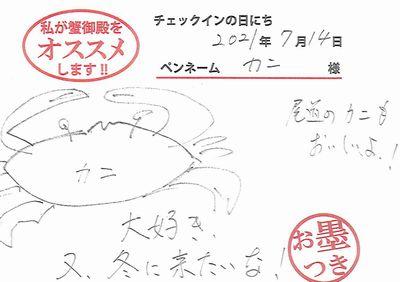 私が蟹御殿を
オススメ
します!!
チェックインの日にち
2021年 7月14日
ペンネーム カニ 様
尾道のカニも
おいしいよ!
カニ
大好き、
又、冬に来たいな!
お墨
つき